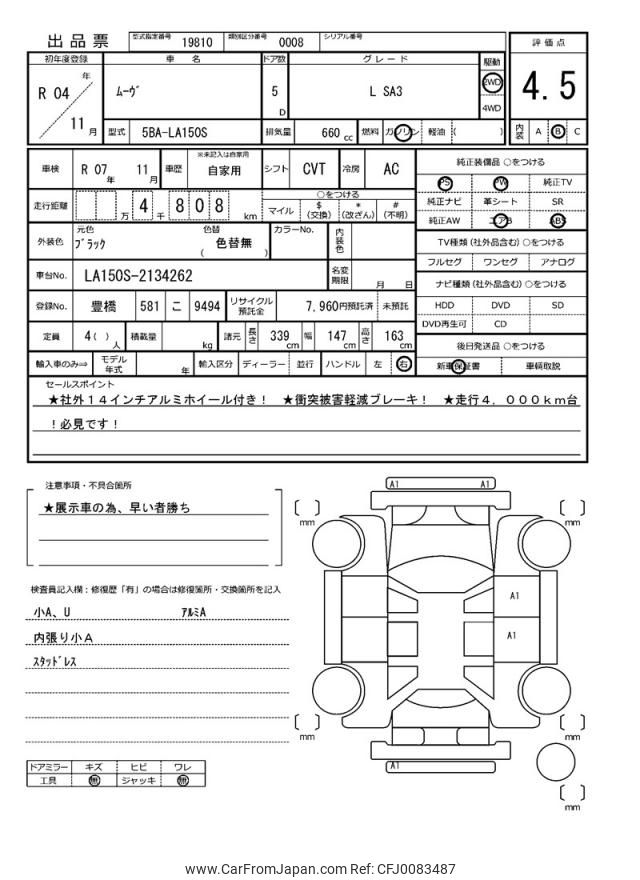 出品票 型式指定番号 19810 類別区分番号 0008 シリアル番号
評価点
4.5
内装 A B C
初年度登録 車名 ドア数 グレード 駆動
R 04 年 11 月
ムーヴ 5 D L SA3 2WD 4WD
型式 5BA-LA150S 排気量 660 cc 燃料 ガソリン 軽油 ( )
車検 R 07 年 11 月 車歴 ※未記入は自家用 自家用 シフト CVT 冷房 AC
走行距離 万 4 千 8 0 8 km
○をつける
マイル $ (交換) * (改ざん) # (不明)
外装色 元色 ブラック 色替 ( 色替無 ) カラーNo. 内装色
車台No. LA150S-2134262 名変期限 月 日
登録No. 豊橋 581 こ 9494 リサイクル預託金 7,960円預託済 未預託
定員 4( ) 人 積載量 kg 諸元 長さ 339 cm 幅 147 cm 高さ 163 cm
輸入車のみ⇒ モデル年式 年 輸入区分 ディーラー 並行 ハンドル 左 右
純正装備品 ○をつける
PS PW 純正TV
純正ナビ 革シート SR
純正AW エアB ABS
TV種類 (社外品含む) ○をつける
フルセグ ワンセグ アナログ
ナビ種類 (社外品含む) ○をつける
HDD DVD SD
DVD再生可 CD
後日発送品 ○をつける
新車保証書 車輌取説
セールスポイント
★社外14インチアルミホイール付き! ★衝突被害軽減ブレーキ! ★走行4,000km台
!必見です!
注意事項・不具合箇所
★展示車の為、早い者勝ち
検査員記入欄:修復歴「有」の場合は修復箇所・交換箇所を記入
小A、U アルミA
内張り小A
スタッドレス
ドアミラー キズ ヒビ ワレ
工具 無 ジャッキ 無
A1 A1
mm mm
A1
A1
mm mm
A1
mm
www.CarFromJapan.com Ref: CAJP0083487